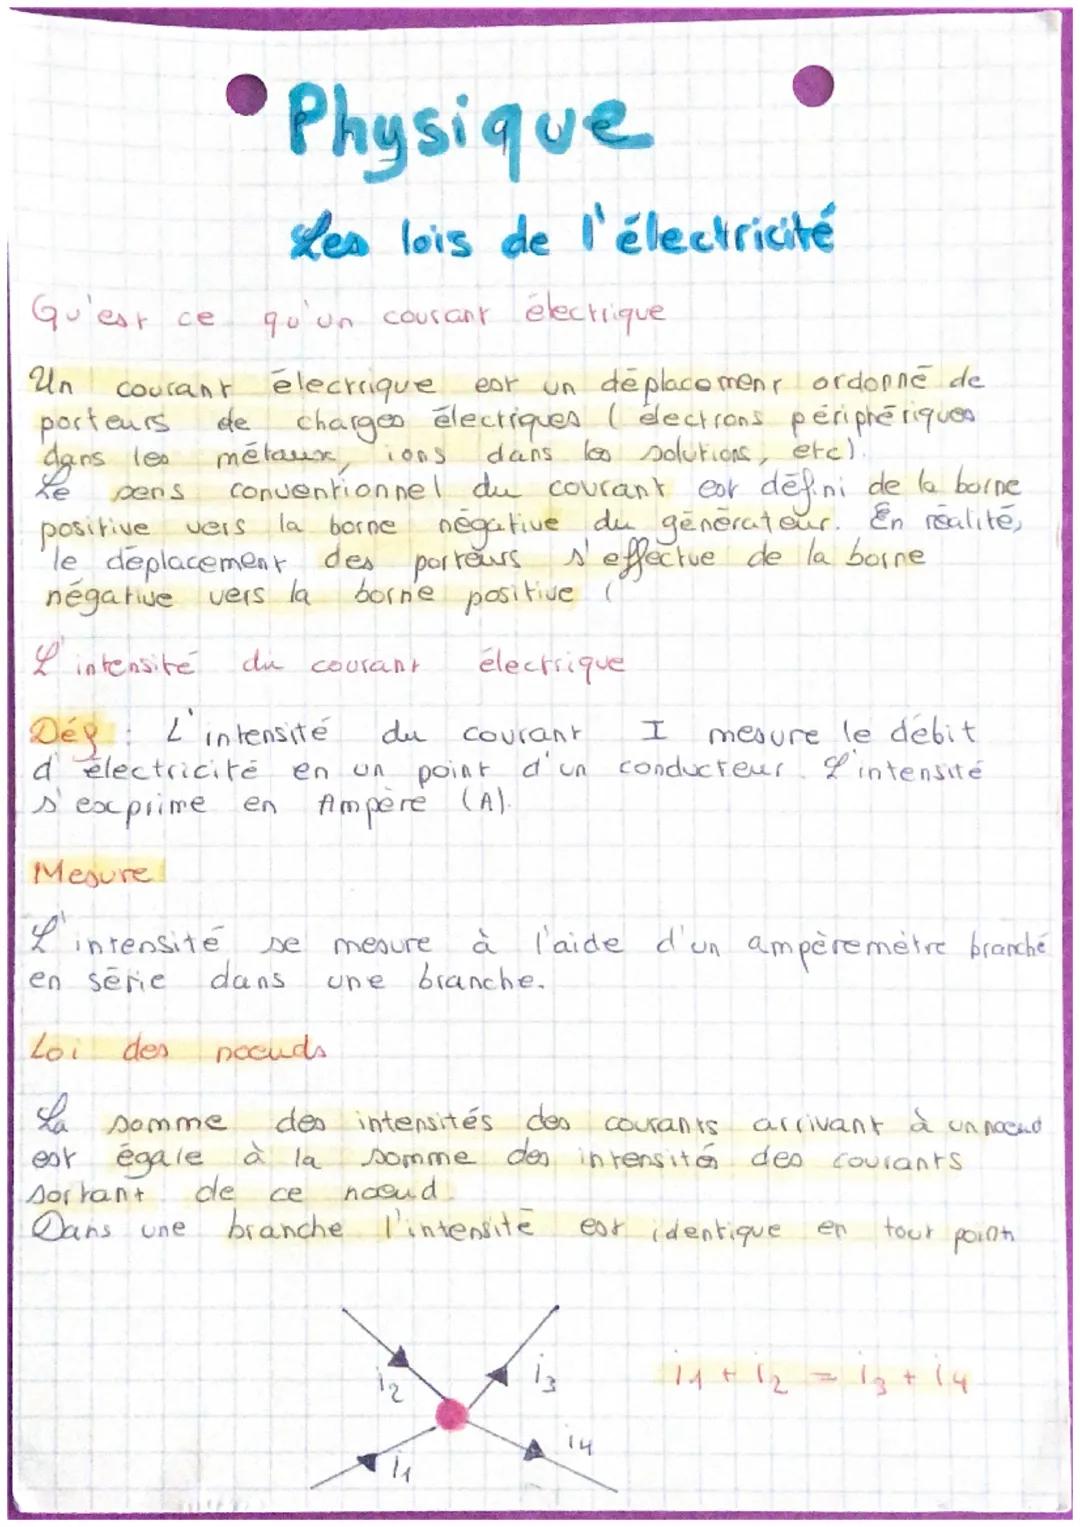 Physique
Les lois de l'électricité
Qu'est ce qu'un courant électrique
Un courant électrique est un déplacement ordonné de
porteurs de charges électriques ( électrons périphériques
dans les métaux, ions dans les solutions, etc).
Le sens conventionnel du courant est défini de la borne
positive vers la borne négative du générateur. En réalité,
le déplacement des porteurs s'effectue de la borne
négative vers la borne positive (
L'intensité du courant électrique
Déf : L'intensité du courant I mesure le débit
d'électricité en un point d'un conducteur. L'intensité
s'exprime en Ampère (A).
Mesure
L'intensité se mesure à l'aide d'un ampèremètre branché
en série dans une branche.
Loi des noeuds
La somme des intensités des courants arrivant à un noeud
est égale à la somme des intensités des courants
sortant de ce noeud.
Dans une branche l'intensité est identique en tout point
i2
i3
i1 + i2 = i3 + i4
i4
i1